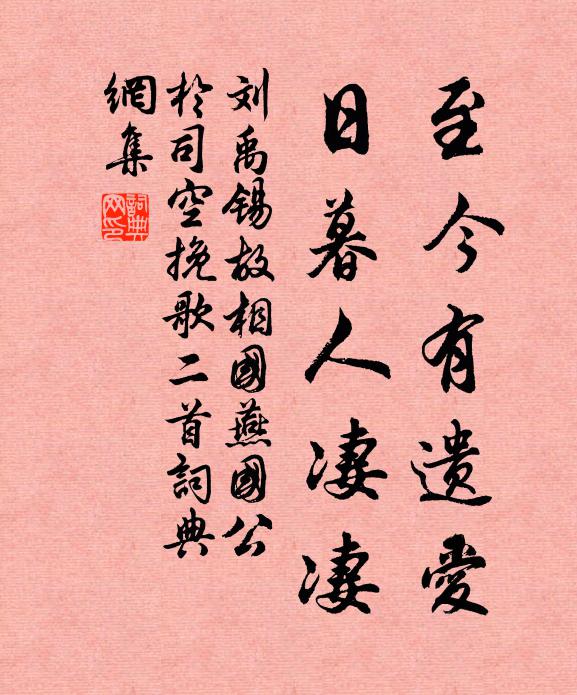 至今有遺愛
日暮人凄凄
刘禹锡故相國燕國公
於司空挽歌二首詞典
網集
詞典
网印